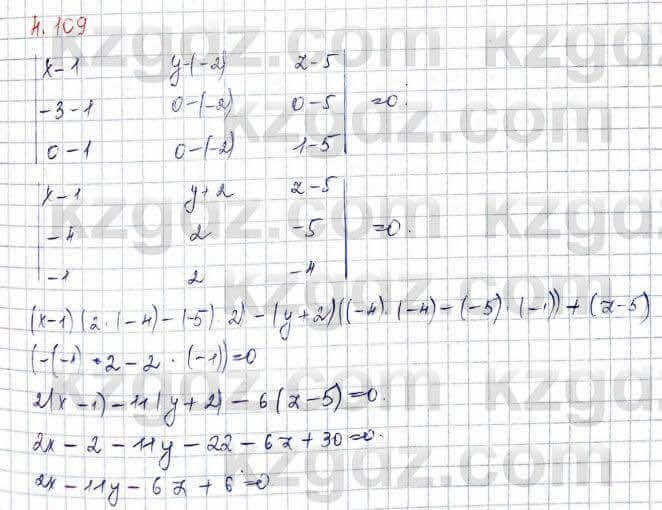 4.109
| x-1 y-(-2) z-5 |
| -3-1 0-(-2) 0-5 | =0.
| 0-1 0-(-2) 1-5 |
| x-1 y+2 z-5 |
| -4 2 -5 | =0.
| -1 2 -4 |
(x-1)(2·(-4)-(-5)·2)-(y+2)((-4)·(-4)-(-5)·(-1))+(z-5)
(-(-1)·2-2·(-1))=0
2(x-1)-11(y+2)-6(z-5)=0.
2x-2-11y-22-6z+30=0.
2x-11y-6z+6=0
kzgdz.com